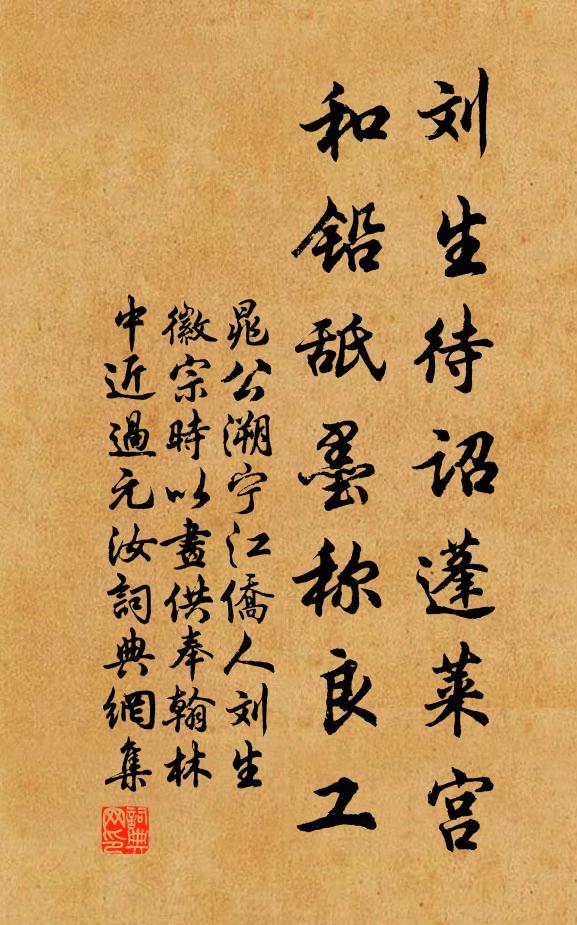 刘生待诏蓬莱宫
和铅舐墨称良工
晁公溯宁江僑人刘生
徽宗時以畫供奉翰林
中近過元汝詞典網集
詞典網印